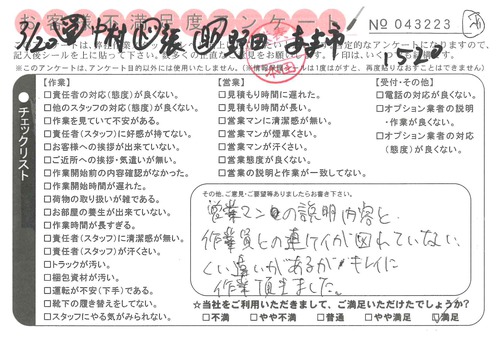 お客様満足度アンケート
No 043223
3/20 中村 張 野田
1520
チェックリスト
【作業】
□責任者の対応(態度)が良くない。
□他のスタッフの対応(態度)が良くない。
□作業を見ていて不安がある。
□責任者(スタッフ)に好感が持てない。
□お客様への挨拶が出来ていない。
□ご近所への挨拶・気遣いが無い。
□作業開始前の内容確認がなかった。
□作業開始時間が遅れた。
□荷物の取り扱いが雑である。
□お部屋の養生が出来ていない。
□作業時間が長すぎる。
□責任者(スタッフ)に清潔感が無い。
□責任者(スタッフ)が汗くさい。
□トラックが汚い。
□梱包資材が汚い。
□運転が不安(下手)である。
□靴下の履き替えをしてない。
□スタッフにやる気がみられない。
【営業】
□見積もり時間に遅れた。
□見積もり時間が長い。
□営業マンに清潔感が無い。
□営業マンが煙草くさい。
□営業マンが汗くさい。
□営業態度が良くない。
□営業の説明と作業が一致してない。
【受付・その他】
□電話の対応が良くない。
□オプション業者の説明
・作業が良くない。
□オプション業者の対応
(態度)が良くない。
その他、ご意見・ご要望等ありましたらお書き下さい。
営業マンの説明内容と
作業員との連ケイが図れていない、
くい違いがあるが キレイに
作業頂きました。
☆当社をご利用いただきまして、ご満足いただけたでしょうか?
□不満 □やや不満 □普通 □やや満足 □満足